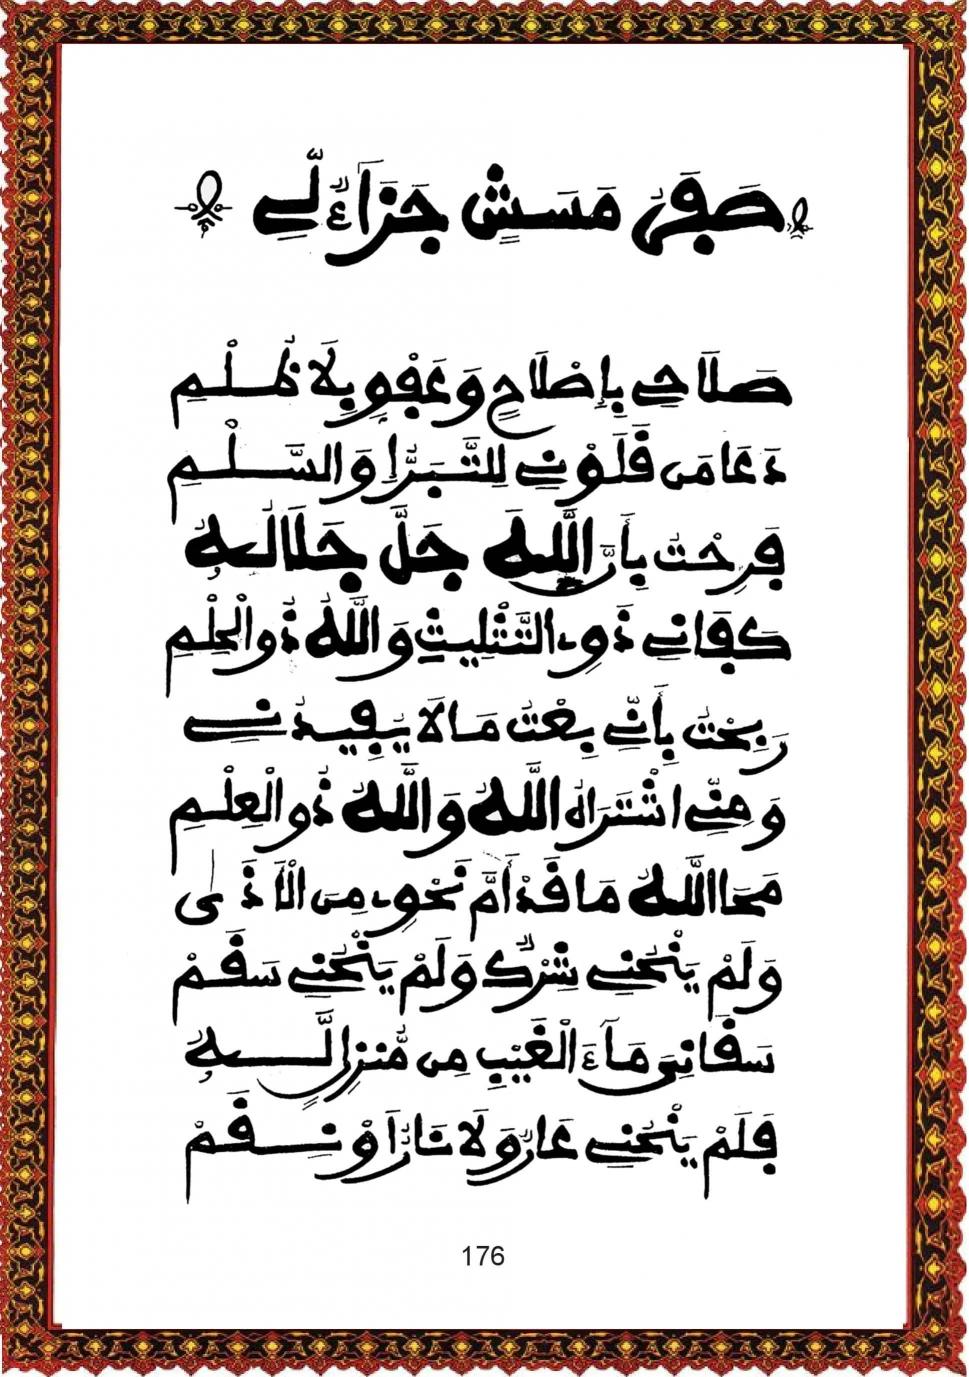 صَفَرُ مَسَشٍ جَزَاءٌ لِّي
صَلَاحِي بِإِصْلَاحٍ وَعَفْوٍ بِلَا ظُلْمِ
دَعَا مَن قَلَوْنِي لِلتَّبَرُّإِ وَالسَّلْمِ
فَرِحْتُ بِأَنَّ اللَّهَ جَلَّ جَلَالُهُ
كَفَانِي ذَوِي التَّثْلِيثِ وَاللَّهُ ذُو الْحِلْمِ
رَبِحْتُ بِأَنِّي بِعْتُ مَا لَا يُفِيدُنِي
وَمِنِّي اشْتَرَاهُ اللَّهُ وَاللَّهُ ذُو الْعِلْمِ
مَحَا اللَّهُ مَا قَدْ أَمَّ نَحْوِي مِنَ الْأَذَى
وَلَمْ يَنْحُنِي شِرْكٌ وَلَمْ يَنْحُنِي سَقَمْ
سَقَانِيَ مَاءَ الْغَيْبِ مِن مُّنزِلٍ لَّهُ
فَلَمْ يَنْحُنِي عَارٌ وَلَا نَارٌ اَوْ نِقَمْ
176